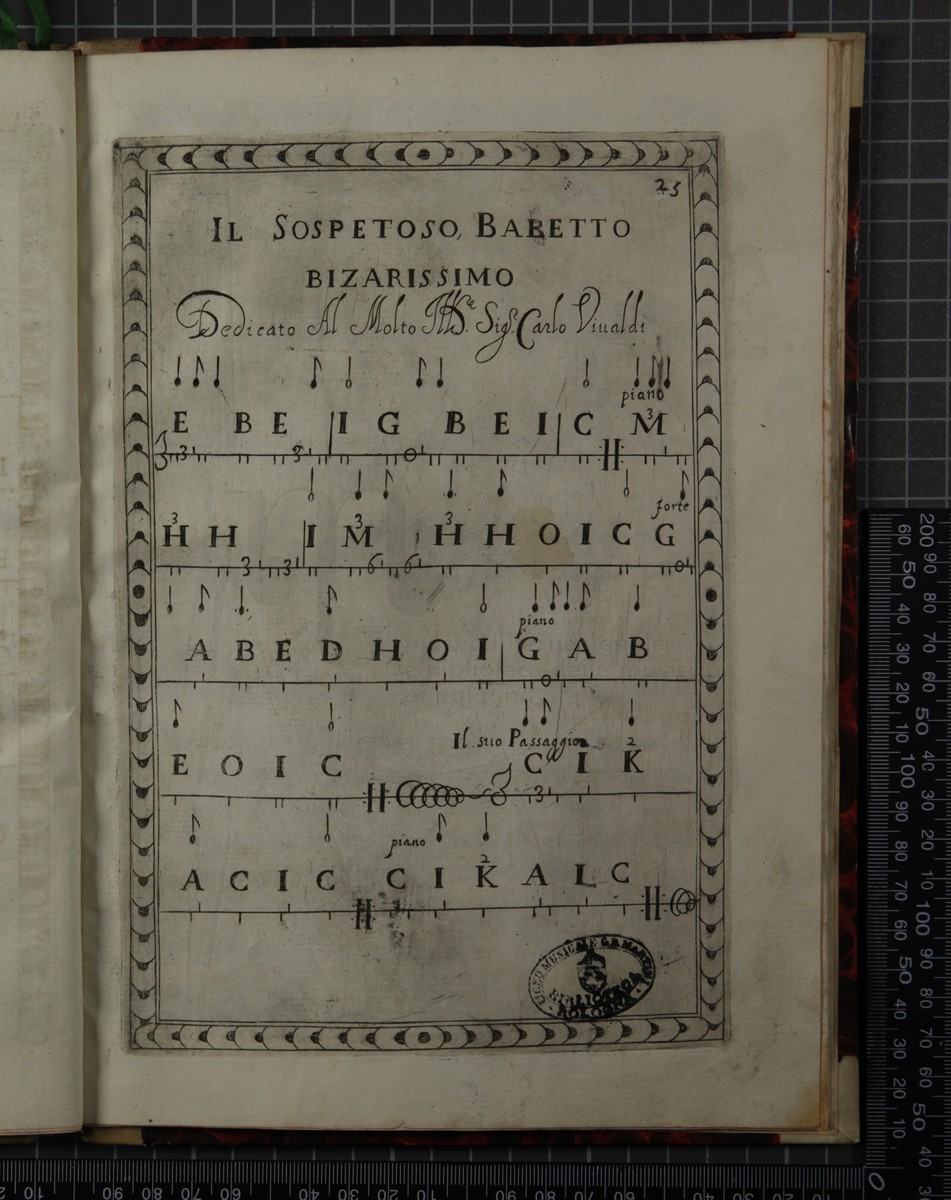 25
IL SOSPETOSO, BALETTO
BIZARISSIMO
Dedicato Al Molto Sigr. Carlo Viualdi
piano
3
E B E I G B E I C M
3 3
forte
3 3 3
H H I M H H O I C G
3 3 6 6
piano
A B E D H O I G A B
Il suo Passaggio
2
E O I C C I K
3
piano
2
A C I C C I K A I C
3
LICEO MUSICALE G.B. MARTINI
BIBLIOTECA
BOLOGNA